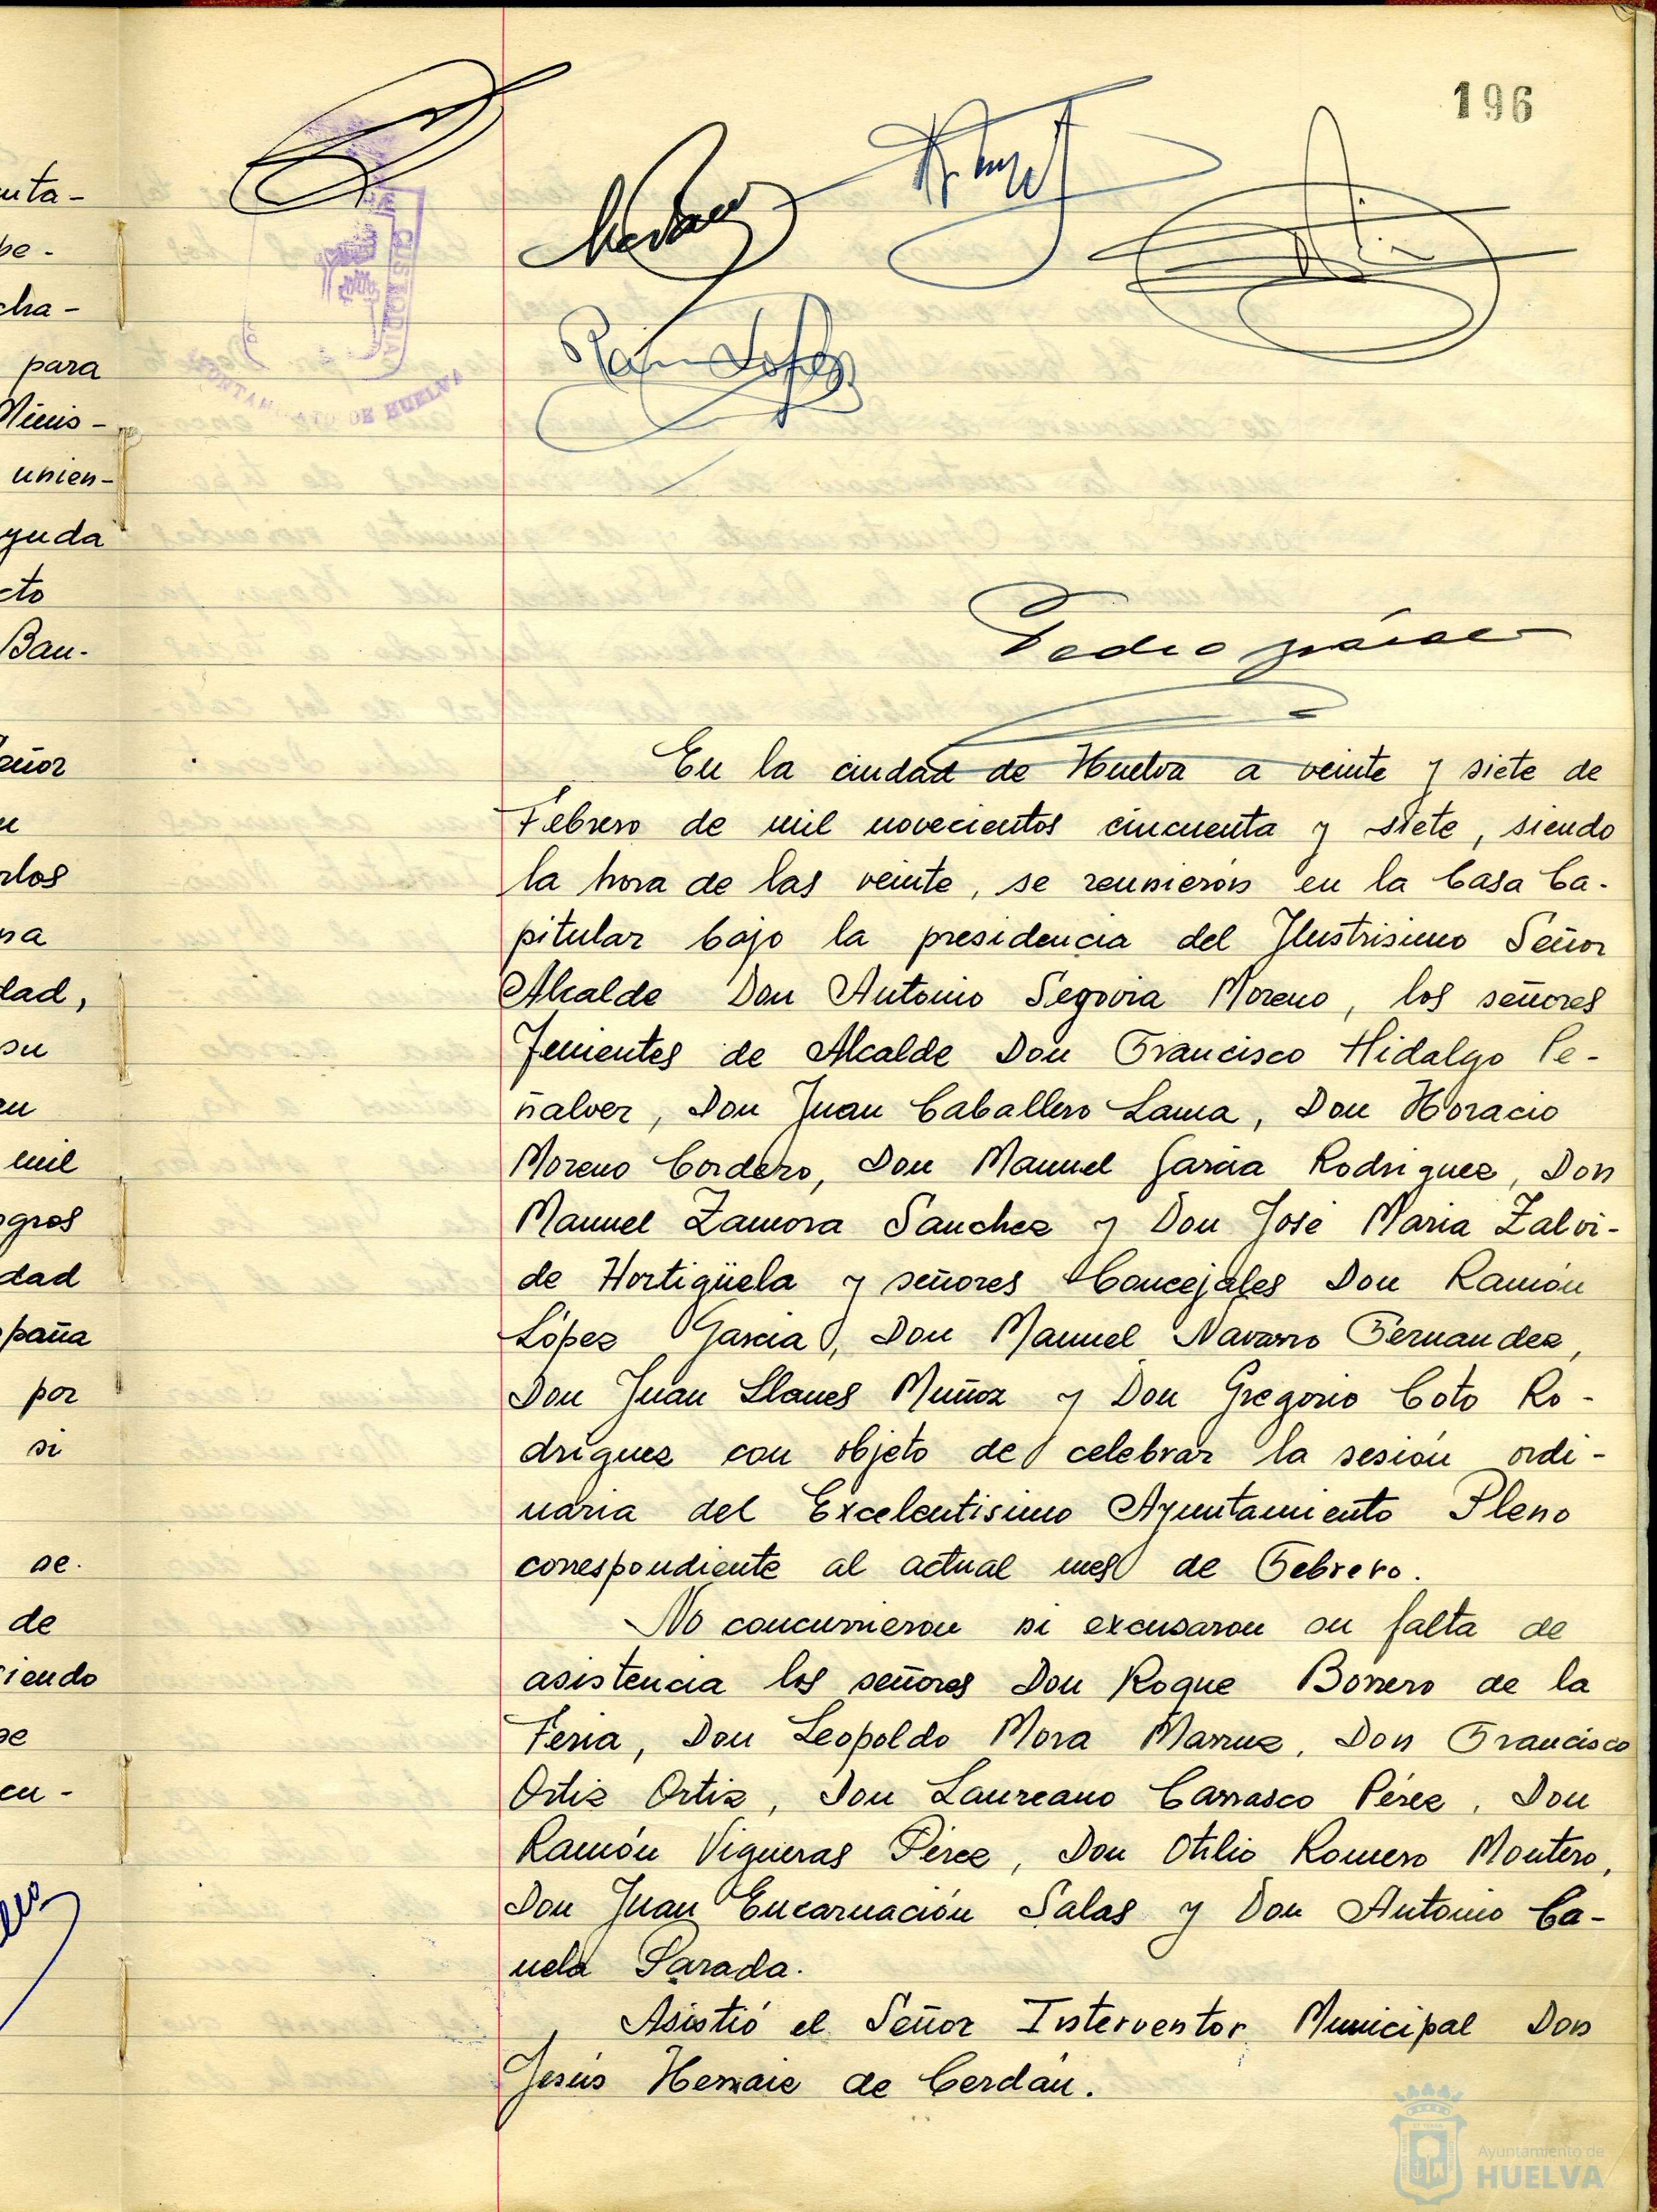 196
uta-
be-
cha-
para
Minis-
unien-
yuda
cto
Bau-
eñor
rlos
na
dad,
su
en
mil
ogros
dad
paña
por
si
se.
de
iendo
cu-
CUSTODIA
AYUNTAMIENTO DE HUELVA
Ramón López
Pedro
En la ciudad de Huelva a veinte y siete de
Febrero de mil novecientos cincuenta y siete, siendo
la hora de las veinte, se reunieron en la Casa Ca-
pitular bajo la presidencia del Ilustrisimo Señor
Alcalde Don Antonio Segovia Moreno, los señores
Tenientes de Alcalde Don Francisco Hidalgo Pe-
ñalver, Don Juan Caballero Lama, Don Horacio
Moreno Cordero, Don Manuel Garcia Rodriguez, Don
Manuel Zamora Sanchez y Don José Maria Zalvi-
de Hortigüela y señores Concejales Don Ramón
López Garcia, Don Manuel Navarro Fernandez,
Don Juan Llanes Muñoz y Don Gregorio Coto Ro-
driguez con objeto de celebrar la sesión ordi-
naria del Excelentisimo Ayuntamiento Pleno
correspondiente al actual mes de Febrero.
No concurrieron ni excusaron su falta de
asistencia los señores Don Roque Borrero de la
Feria, Don Leopoldo Mora Marruz, Don Francisco
Ortiz Ortiz, Don Laureano Carrasco Pérez, Don
Ramón Vigueras Pérez, Don Otilio Romero Montero,
Don Juan Encarnación Salas y Don Antonio Ca-
nela Parada.
Asistió el Señor Interventor Municipal Don
Jesús Hernaiz de Cerdán.
Ayuntamiento de
HUELVA